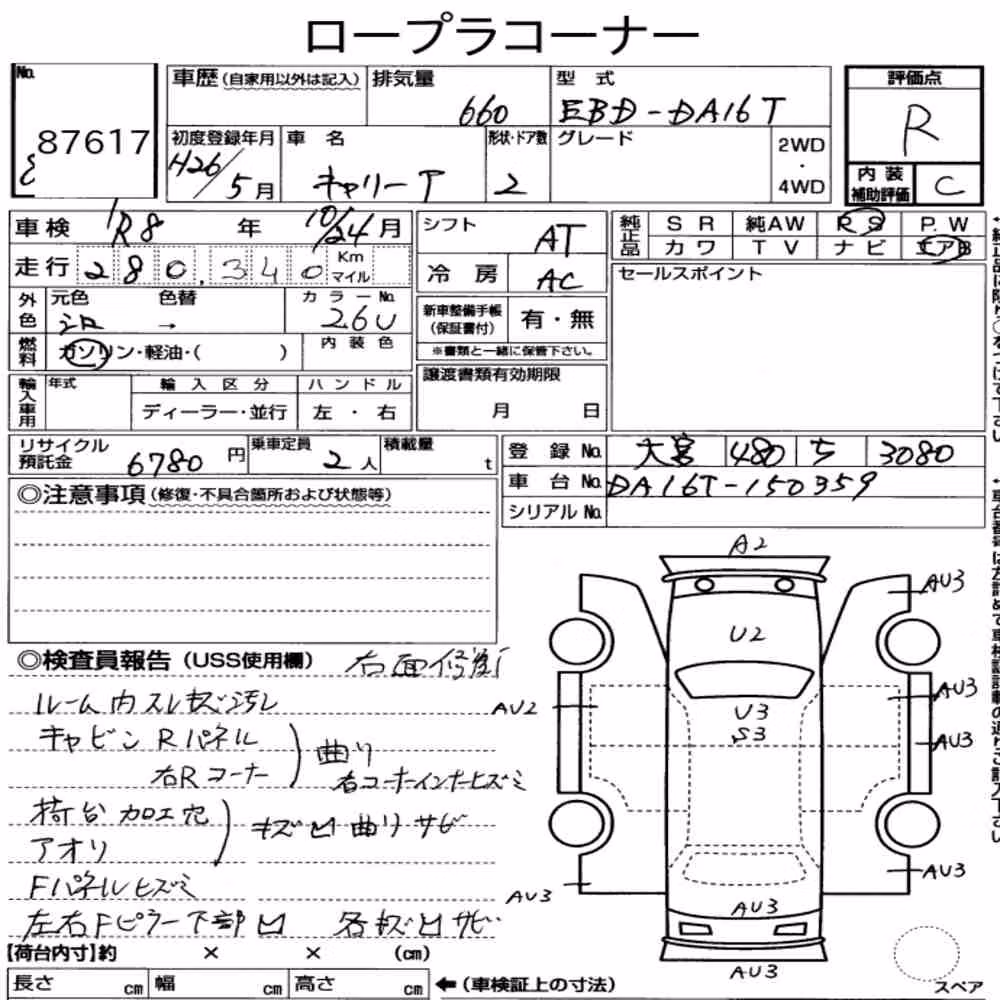 ロープラコーナー
No.
87617
車歴 (自家用以外は記入)
排気量
660
型式
EBD-DA16T
評価点
R
初度登録年月
H26/5月
車名
キャリーT
形状・ドア数
2
グレード
2WD
・
4WD
内装
補助評価
C
車検
R8年
10/24月
シフト
AT
純正品
SR 純AW RS P.W
カワ TV ナビ エアB
走行
280,340
Km
マイル
冷房
AC
セールスポイント
外色
元色 色替
シロ →
カラーNo.
26U
新車整備手帳
(保証書付)
有・無
燃料
ガソリン・軽油・( )
内装色
※書類と一緒に保管下さい。
輸入車用
年式
輸入区分
ハンドル
ディーラー・並行
左・右
譲渡書類有効期限
月 日
リサイクル
預託金
6780円
乗車定員
2人
積載量
t
登録No.
大宮 480 ち 3080
車台No.
DA16T-150359
シリアルNo.
◎注意事項 (修復・不具合箇所および状態等)
◎検査員報告 (USS使用欄) 右面修歴
ルーム内スレキズ汚レ
キャビンRパネル
右Rコーナー
曲り
右コーナーインナーヒズミ
荷台加工穴
アオリ
キズ凹曲りサビ
Fパネルヒズミ
左右Fピラー下部凹 各キズ凹サビ
【荷台内寸】約 × × (cm)
長さ cm 幅 cm 高さ cm
←(車検証上の寸法)
A2
AU3
U2
AU2
U3
S3
AU3
AU3
AU3
AU3
AU3
AU3
スペア